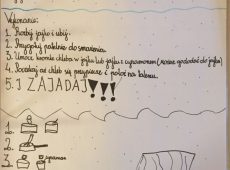 Wykonanie:
1. Rozbij jajko i ubij.
2. Przygotuj patelnie do smażenia.
3. Umocz kromkę chleba w jajku lub jajku z cynamonem (można posłodzić do jajka)
4. Poczekaj aż chleb się przypiecze i połóż na talerzu.
5. I ZAJADAJ!!!
1.
2.
3.
cynamon